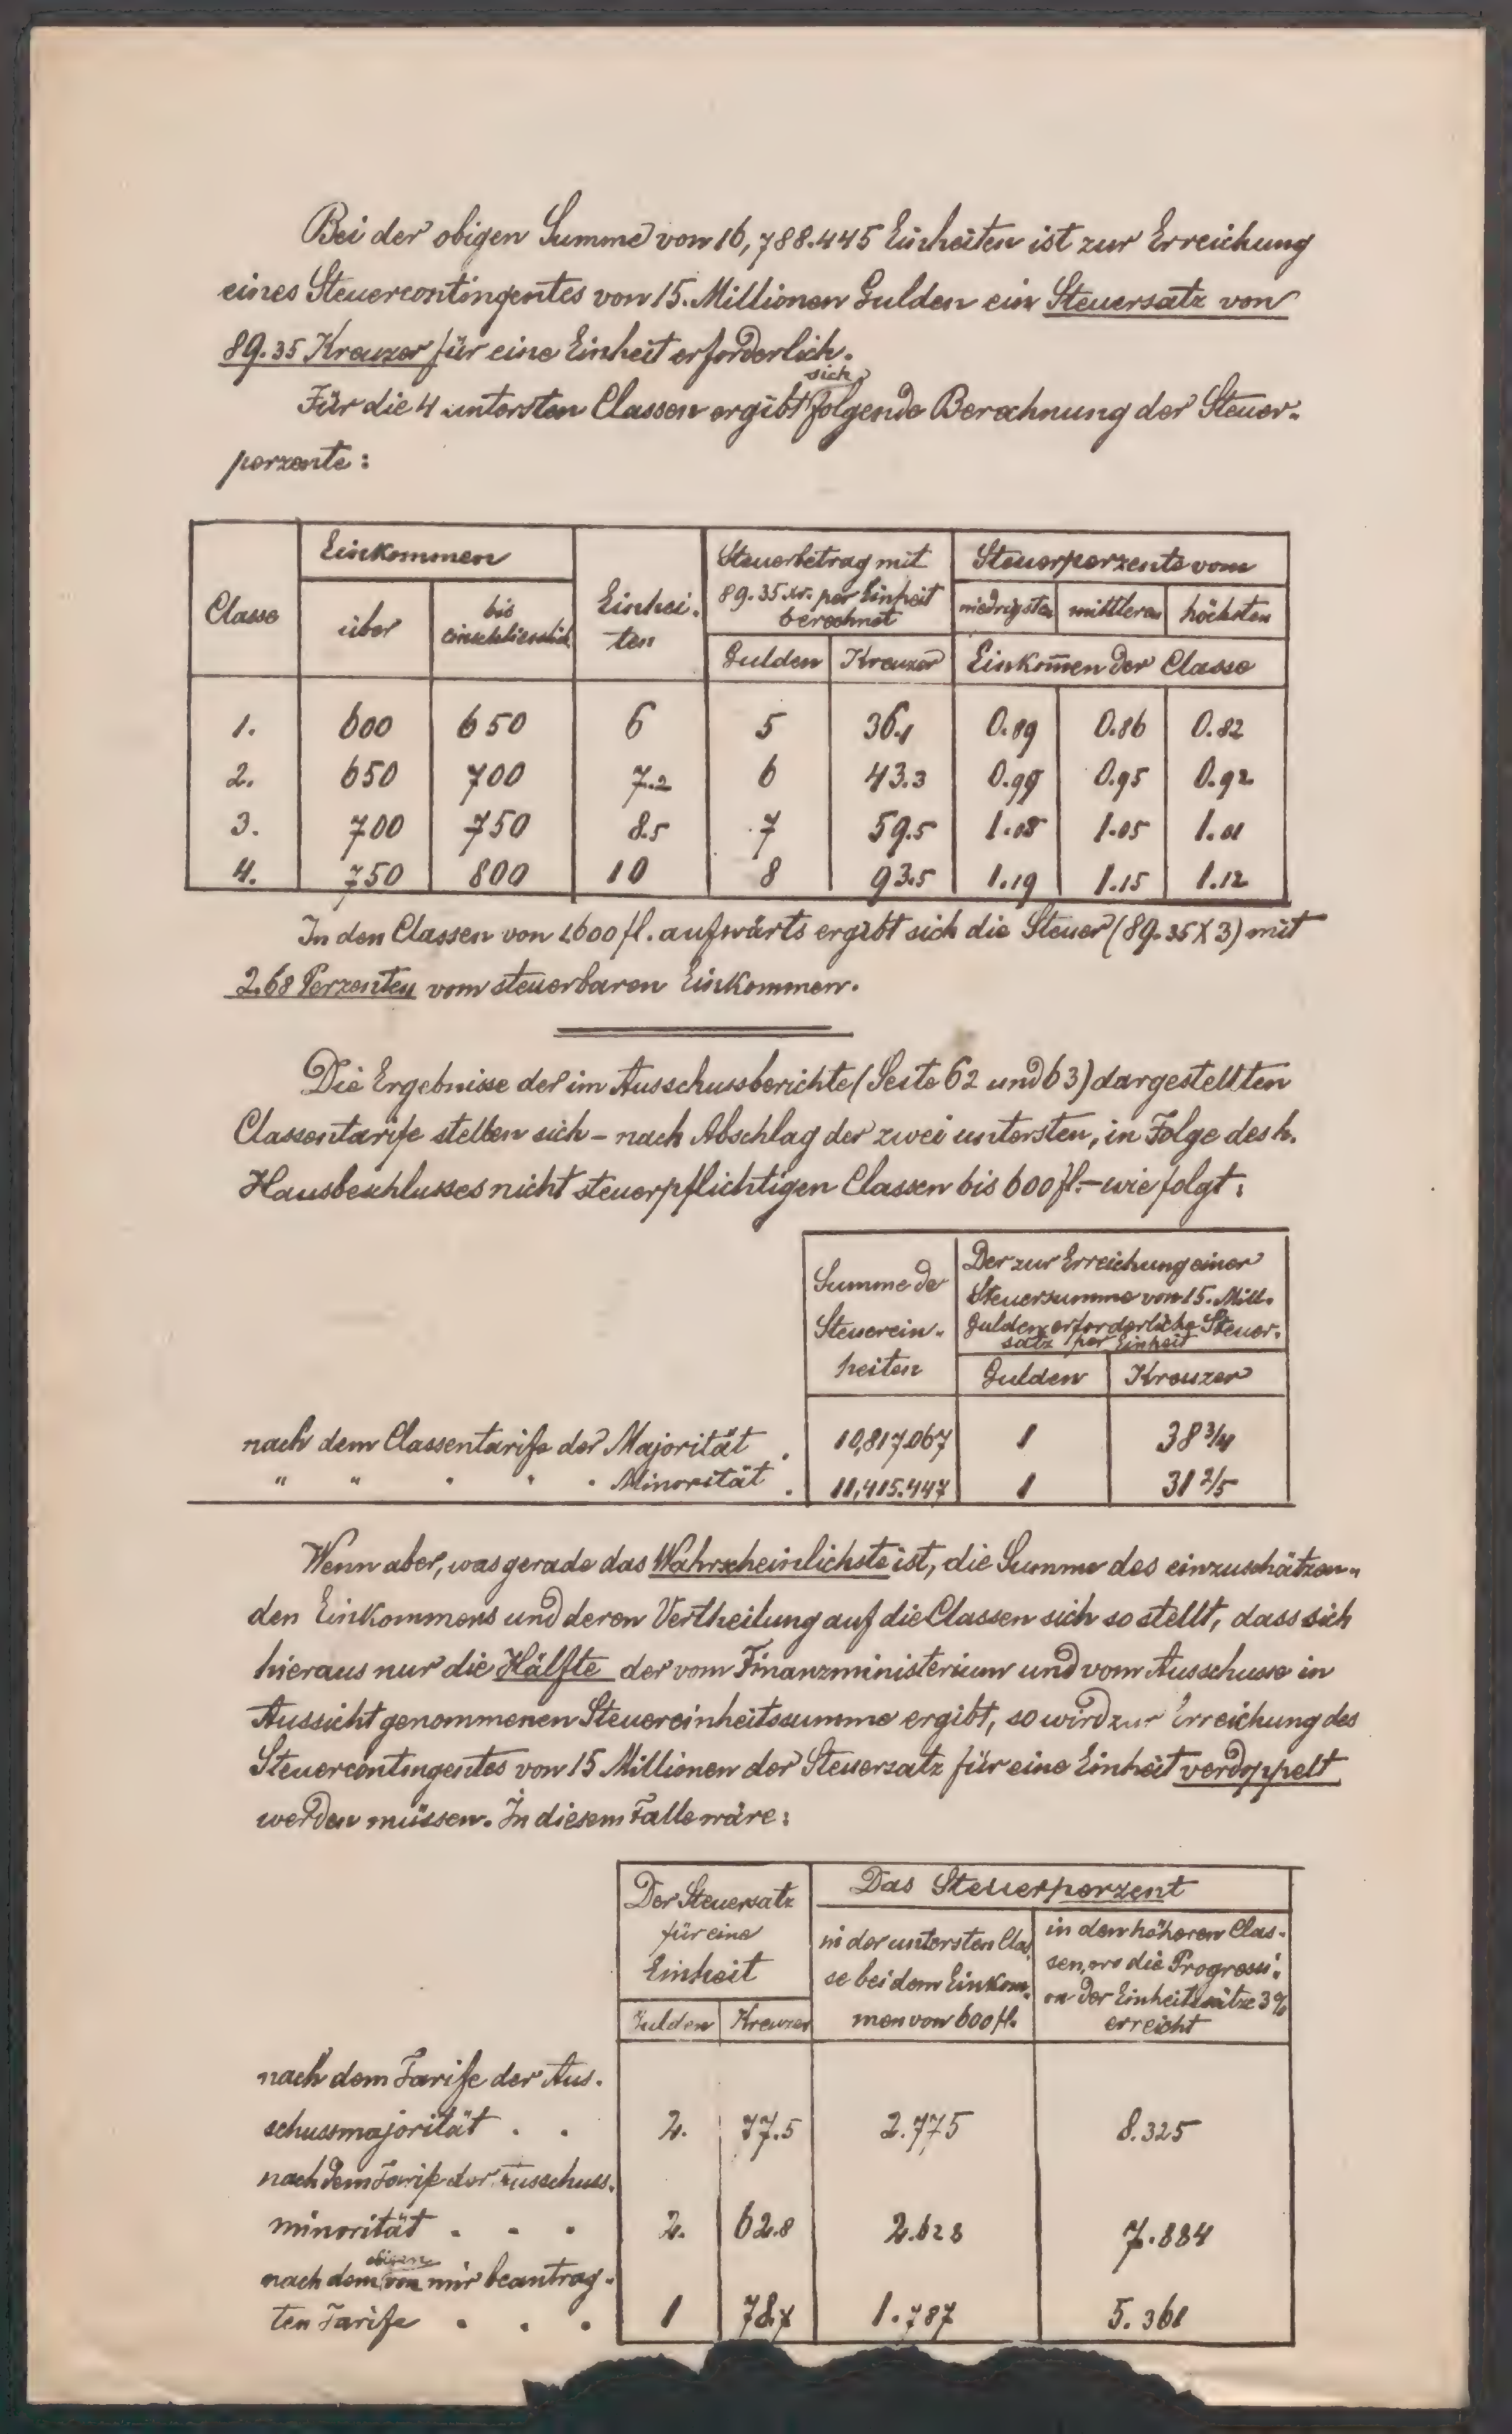 Bei der obigen Summe von 16,788.445 Einheiten ist zur Erreichung
eines Steuercontingentes von 15. Millionen Gulden ein Steuersatz von
89.35 Kreuzer für eine Einheit erforderlich.
sich
Für die 4 untersten Classen ergibt folgende Berechnung der Steuer-
perzente:
Classe | Einkommen | Einhei- ten | Steuerbetrag mit 89.35 kr. per Einheit berechnet | Steuerperzente vom
über | bis einschliesslich | niedrigsten | mittleren | höchsten
Gulden | Kreuzer | Einkom̄en der Classe
1. | 600 | 650 | 6 | 5 | 36.1 | 0.89 | 0.86 | 0.82
2. | 650 | 700 | 7.2 | 6 | 43.3 | 0.99 | 0.95 | 0.92
3. | 700 | 750 | 8.5 | 7 | 59.5 | 1.08 | 1.05 | 1.01
4. | 750 | 800 | 10 | 8 | 93.5 | 1.19 | 1.15 | 1.12
In den Classen von 1600 fl. aufwärts ergibt sich die Steuer (89.35 X 3) mit
2.68 Perzenten vom steuerbaren Einkommen.
Die Ergebnisse der im Ausschussberichte (Seite 62 und 63) dargestellten
Classentarife stellen sich – nach Abschlag der zwei untersten, in Folge des h.
Hausbeschlusses nicht steuerpflichtigen Classen bis 600 fl. – wie folgt:
Summe de
Steuerein-
heiten
Der zur Erreichung einer
Steuersumme von 15. Mill.
Gulden erforderliche Steuer-
satz per Einheit
Gulden | Kreuzer
nach dem Classentarife der Majorität . | 10,817.067 | 1 | 38 3/4
" " " " " Minorität . | 11,415.447 | 1 | 31 2/5
Wenn aber, was gerade das Wahrscheinlichste ist, die Summe des einzuschätzen-
den Einkommens und deren Vertheilung auf die Classen sich so stellt, dass sich
hieraus nur die Hälfte der vom Finanzministerium und vom Ausschusse in
Aussicht genommenen Steuereinheitssumme ergibt, so wird zur Erreichung des
Steuercontingentes von 15 Millionen der Steuersatz für eine Einheit verdoppelt
werden müssen. In diesem Falle wäre:
Der Steuersatz
für eine
Einheit
Gulden | Kreuzer
Das Steuerperzent
in der untersten Clas
se bei dem Einkom-
men von 600 fl.
in den höheren Clas-
sen, wo die Progressi-
on der Einheitssätze 3%
erreicht
nach dem Tarife der Aus-
schussmajorität . . | 2. | 77.5 | 2.775 | 8.325
nach dem Tarife der Ausschuss-
minorität . . . | 2. | 62.8 | 2.628 | 7.884
obigen
nach dem von mir beantrag-
ten Tarife . . . | 1 | 78.7 | 1.787 | 5.361